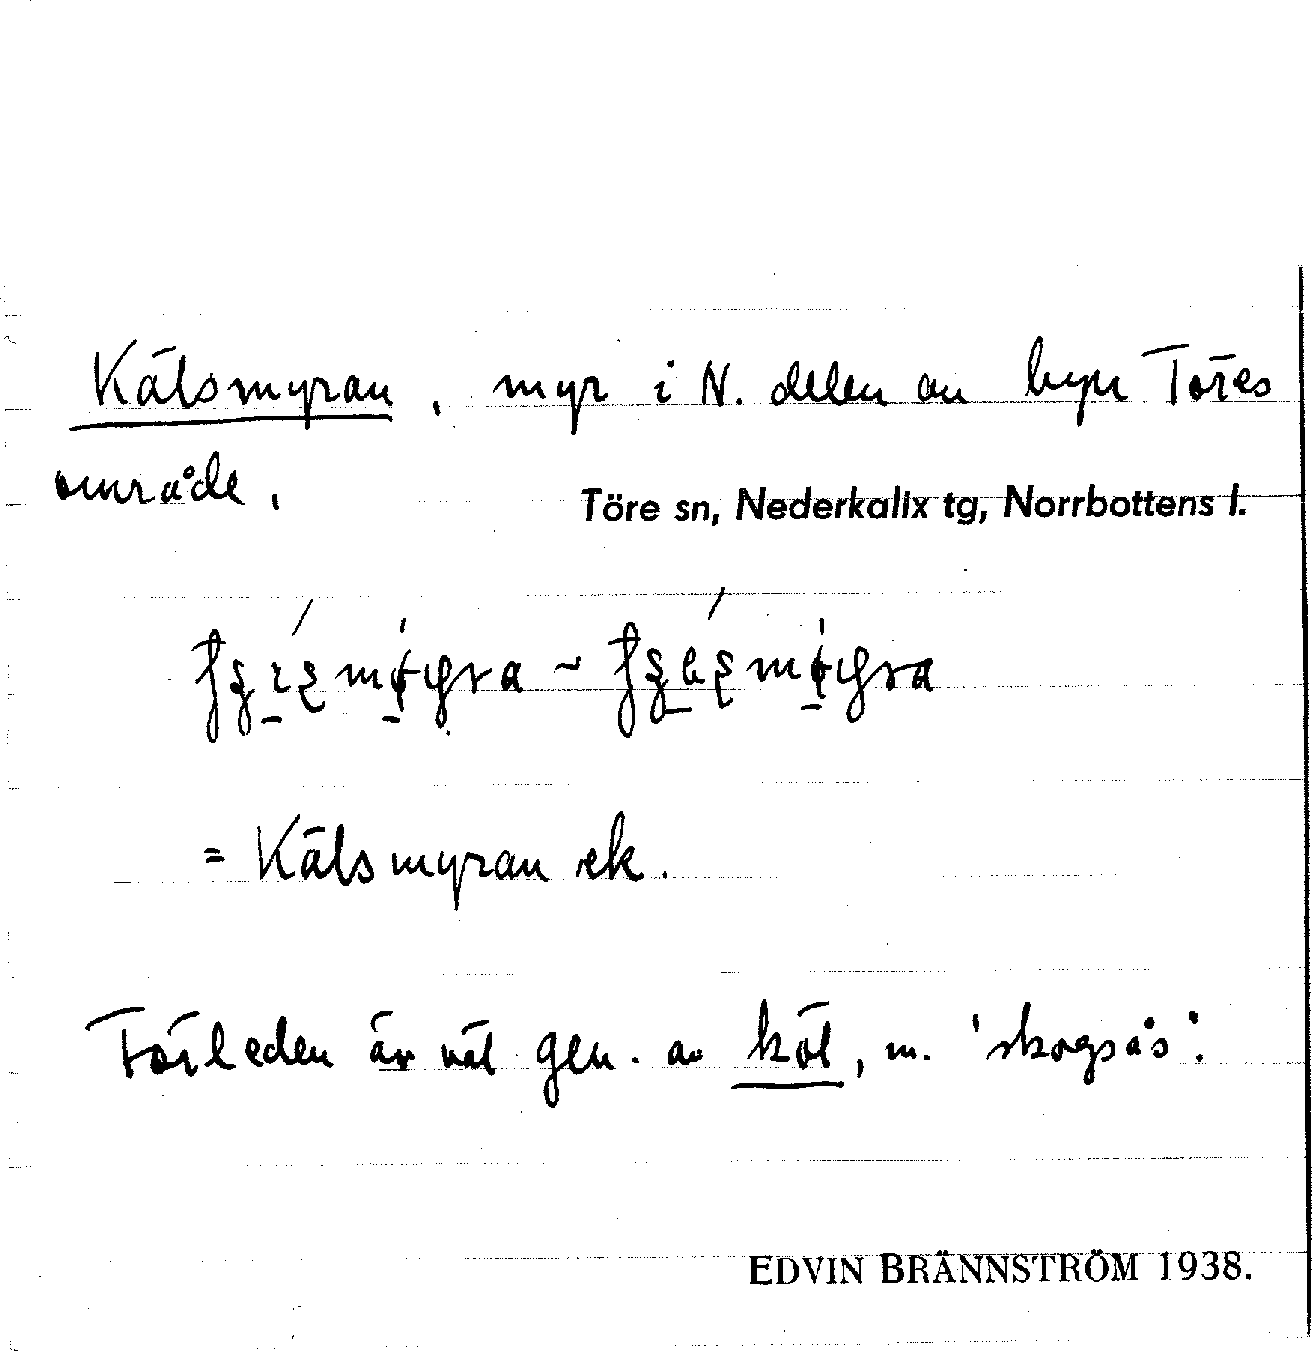 Kälsmyran, myr i N. delen av byn Töres
område.
Töre sn, Nederkalix tg, Norrbottens l.
= Kälsmyran ek.
Förleden är väl gen. av köl, m. 'skogsås'.
EDVIN BRÄNNSTRÖM 1938.